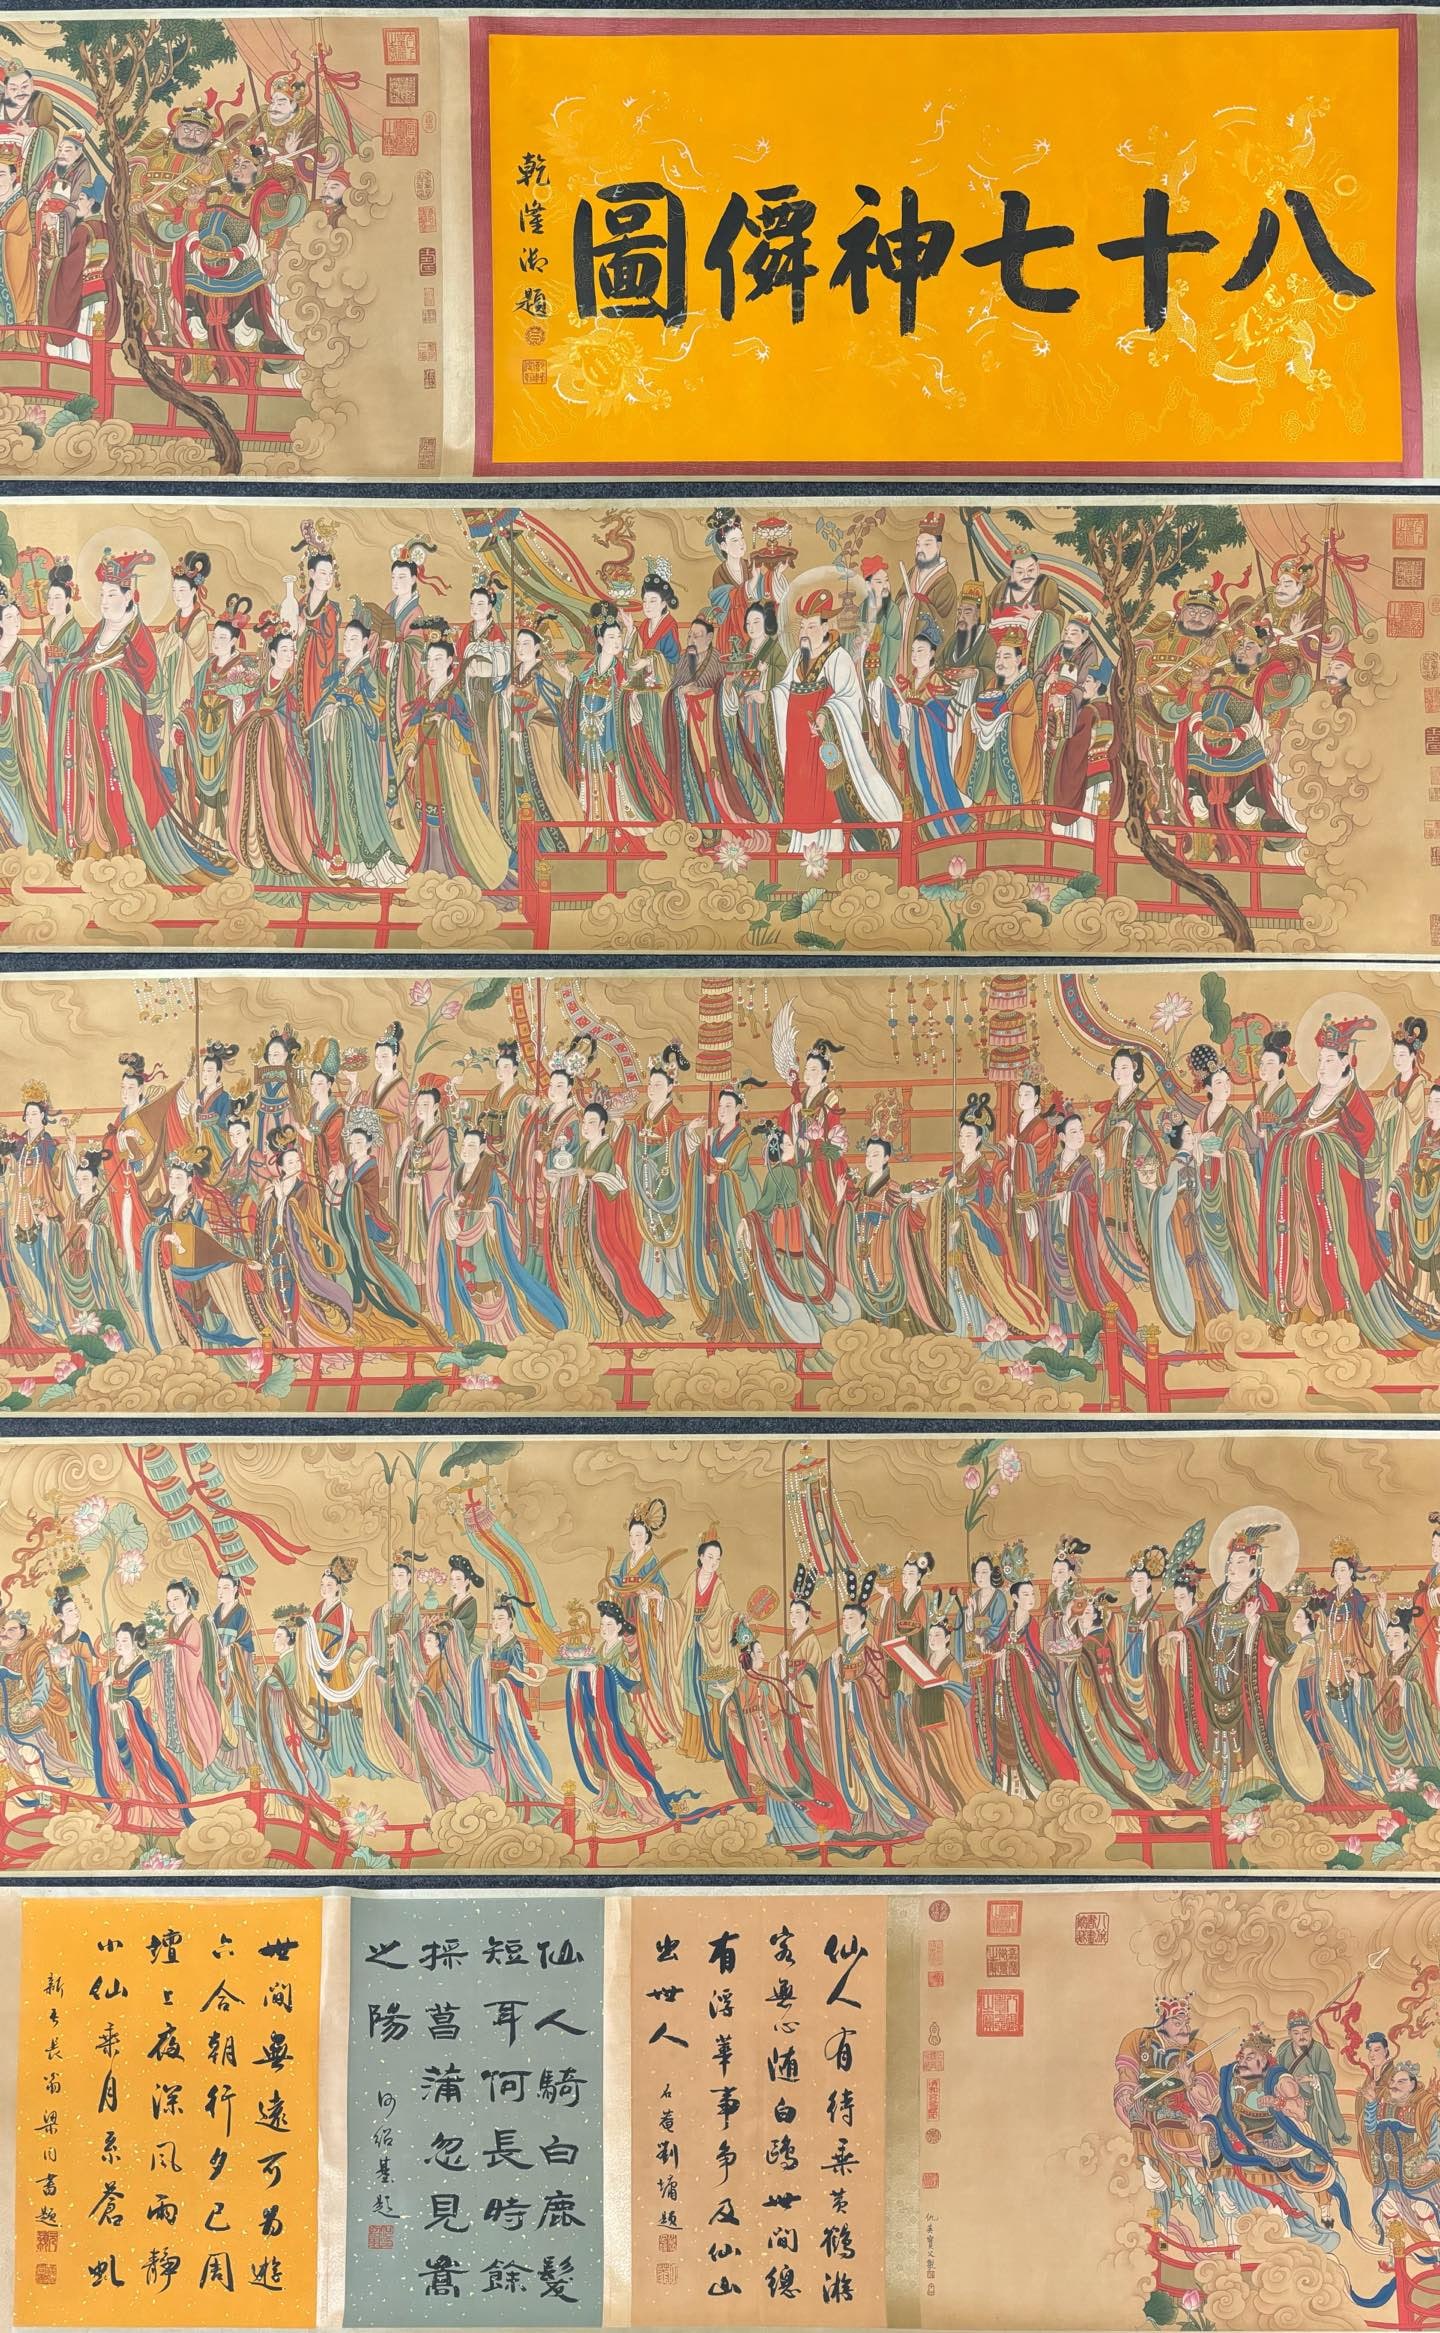 八十七神僊圖
乾隆御題
仇英實父製
仙人有待乘黄鶴游
客無心随白鷗世間總
有浮華事争及仙山
出世人
石菴劉墉題
仙人騎白鹿髮
短耳何長時餘
採菖蒲忽見嵩
之陽
何紹基題
世間無遠可為遊
六合朝行夕已周
壇上夜深風雨靜
小仙乘月系蒼虬
新吾長翁梁同書題